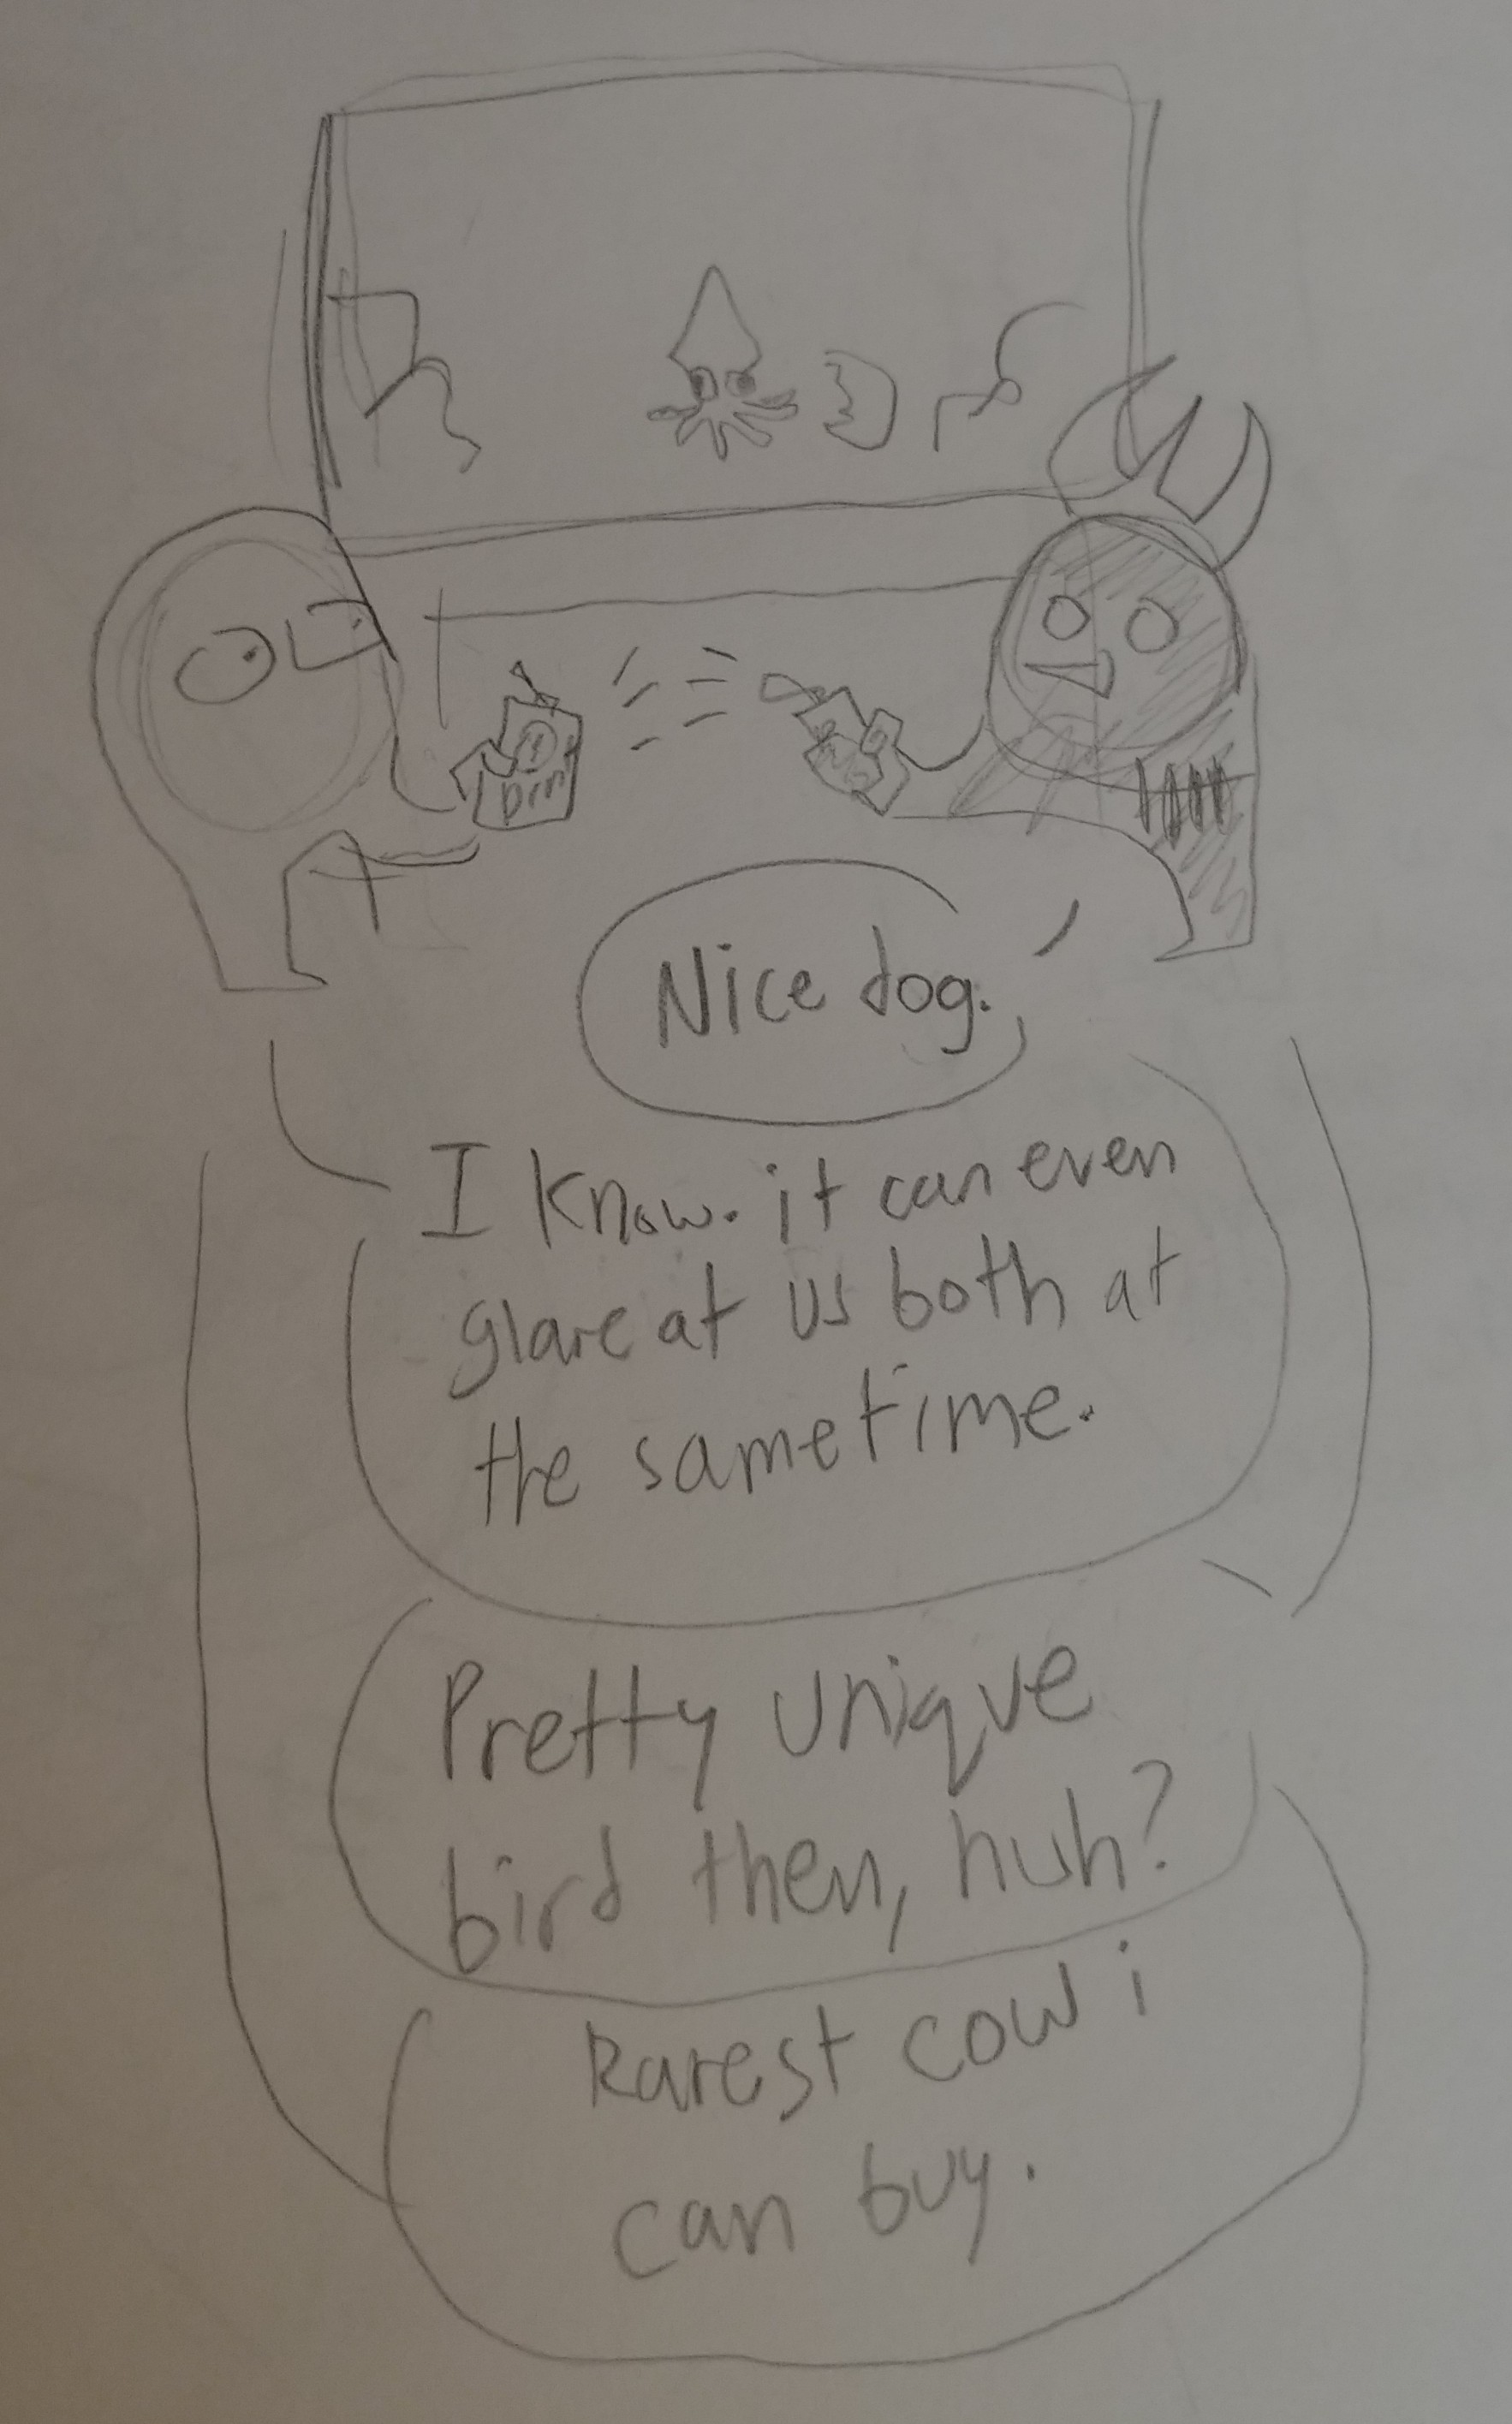 Nice dog.
I know. it can even
glare at us both at
the sametime.
Pretty unique
bird then, huh?
Rarest cow i
can buy.